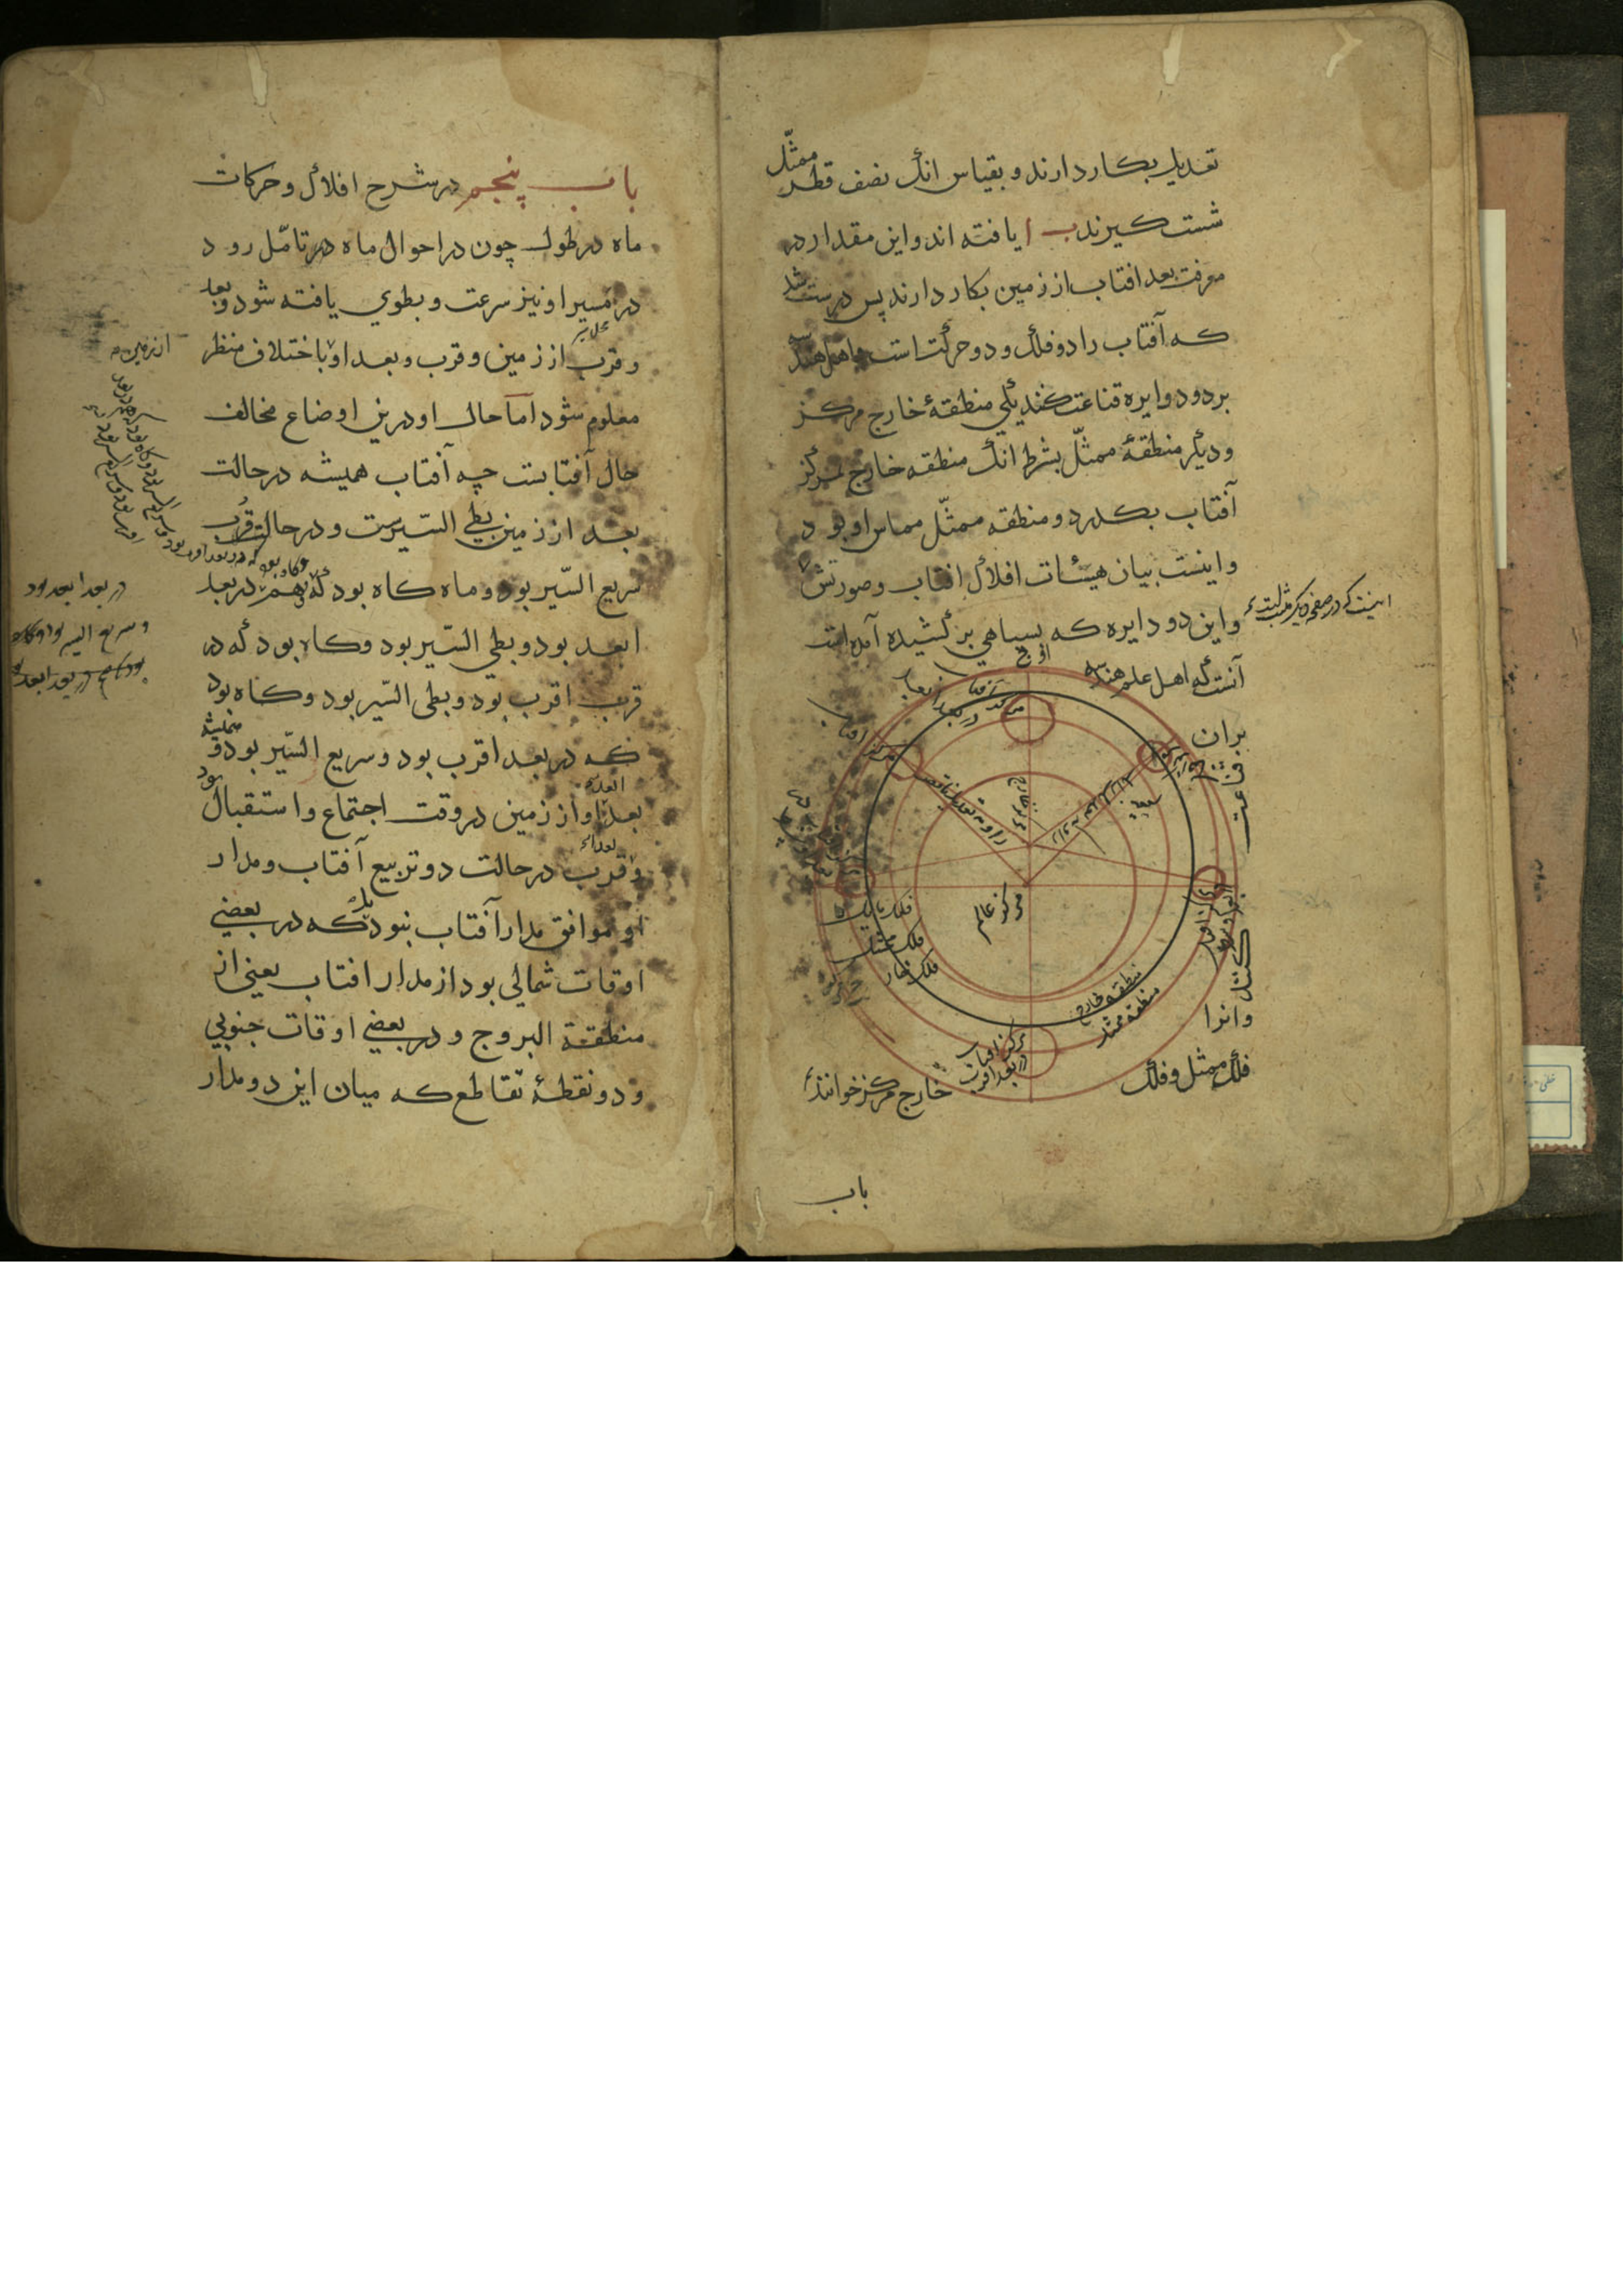 تعدیل بکار دارند و بقیاس انک نصف قطر ممثّل
شست کیرند ب ا یافته اند و این مقدار در
معرفت بعد افتاب از زمین بکار دارند پس درست شد
که آفتاب را دو فلک و دو حرکت است و اهل هندسه
بر دو دایره قناعت کنند یکی منطقهٔ خارج مرکز
و دیگر منطقهٔ ممثّل بشرط انک منطقه خارج بمرکز
آفتاب بکذرد و منطقه ممثّل مماس او بود
و اینست بیان هیئات افلاک افتاب و صورتش
اینست که در صفحه دیکر مثبت است
و این دو دایره که بسیاهی بر کشیده آمده است
آنست که اهل علم هندسه
بران
قناعت
کنند
وانرا
فلک ممثل و فلک
خارج مرکز خوانند
اوج
مرکز آفتاب
در بعد ابعد
مرکز افتاب
زاویه تعدیل
مرکز خارج
مرکز عالم
فلک مایل
فلک ممثل
فلک خارج
منطقه خارج
منطقه ممثل
مرکز افتاب
در بعد اقرب
باب
باب پنجم در شرح افلاک و حرکات
ماه در طول چون در احوال ماه در تامّل رود
در مسیر او نیز سرعت و بطوی یافته شود و بعد
و قرب از زمین و قرب و بعد او باختلاف منظر
معلوم شود امّا حال او درین اوضاع مخالف
حال آفتابست چه آفتاب همیشه در حالت
بعد از زمین بطی السّیرست و در حالت قرب
سریع السّیر بود و ماه کاه بود که هم در بعد
ابعد بود و بطی السّیر بود و کاه بود که در
قرب اقرب بود و بطی السّیر بود و کاه بود
که در بعد اقرب بود و سریع السّیر بود و همیشه
بعد او از زمین در وقت اجتماع و استقبال بود
و قرب در حالت دو تربیع آفتاب و مدار
او موافق مدار آفتاب نبود بلکه در بعضی
اوقات شمالی بود از مدار افتاب یعنی از
منطقة البروج و در بعضی اوقات جنوبی
و دو نقطهٔ تقاطع که میان این دو مدار
از زمین
در بعد ابعد بود
و سریع السیر بود و کاه
بود که در بعد ابعد